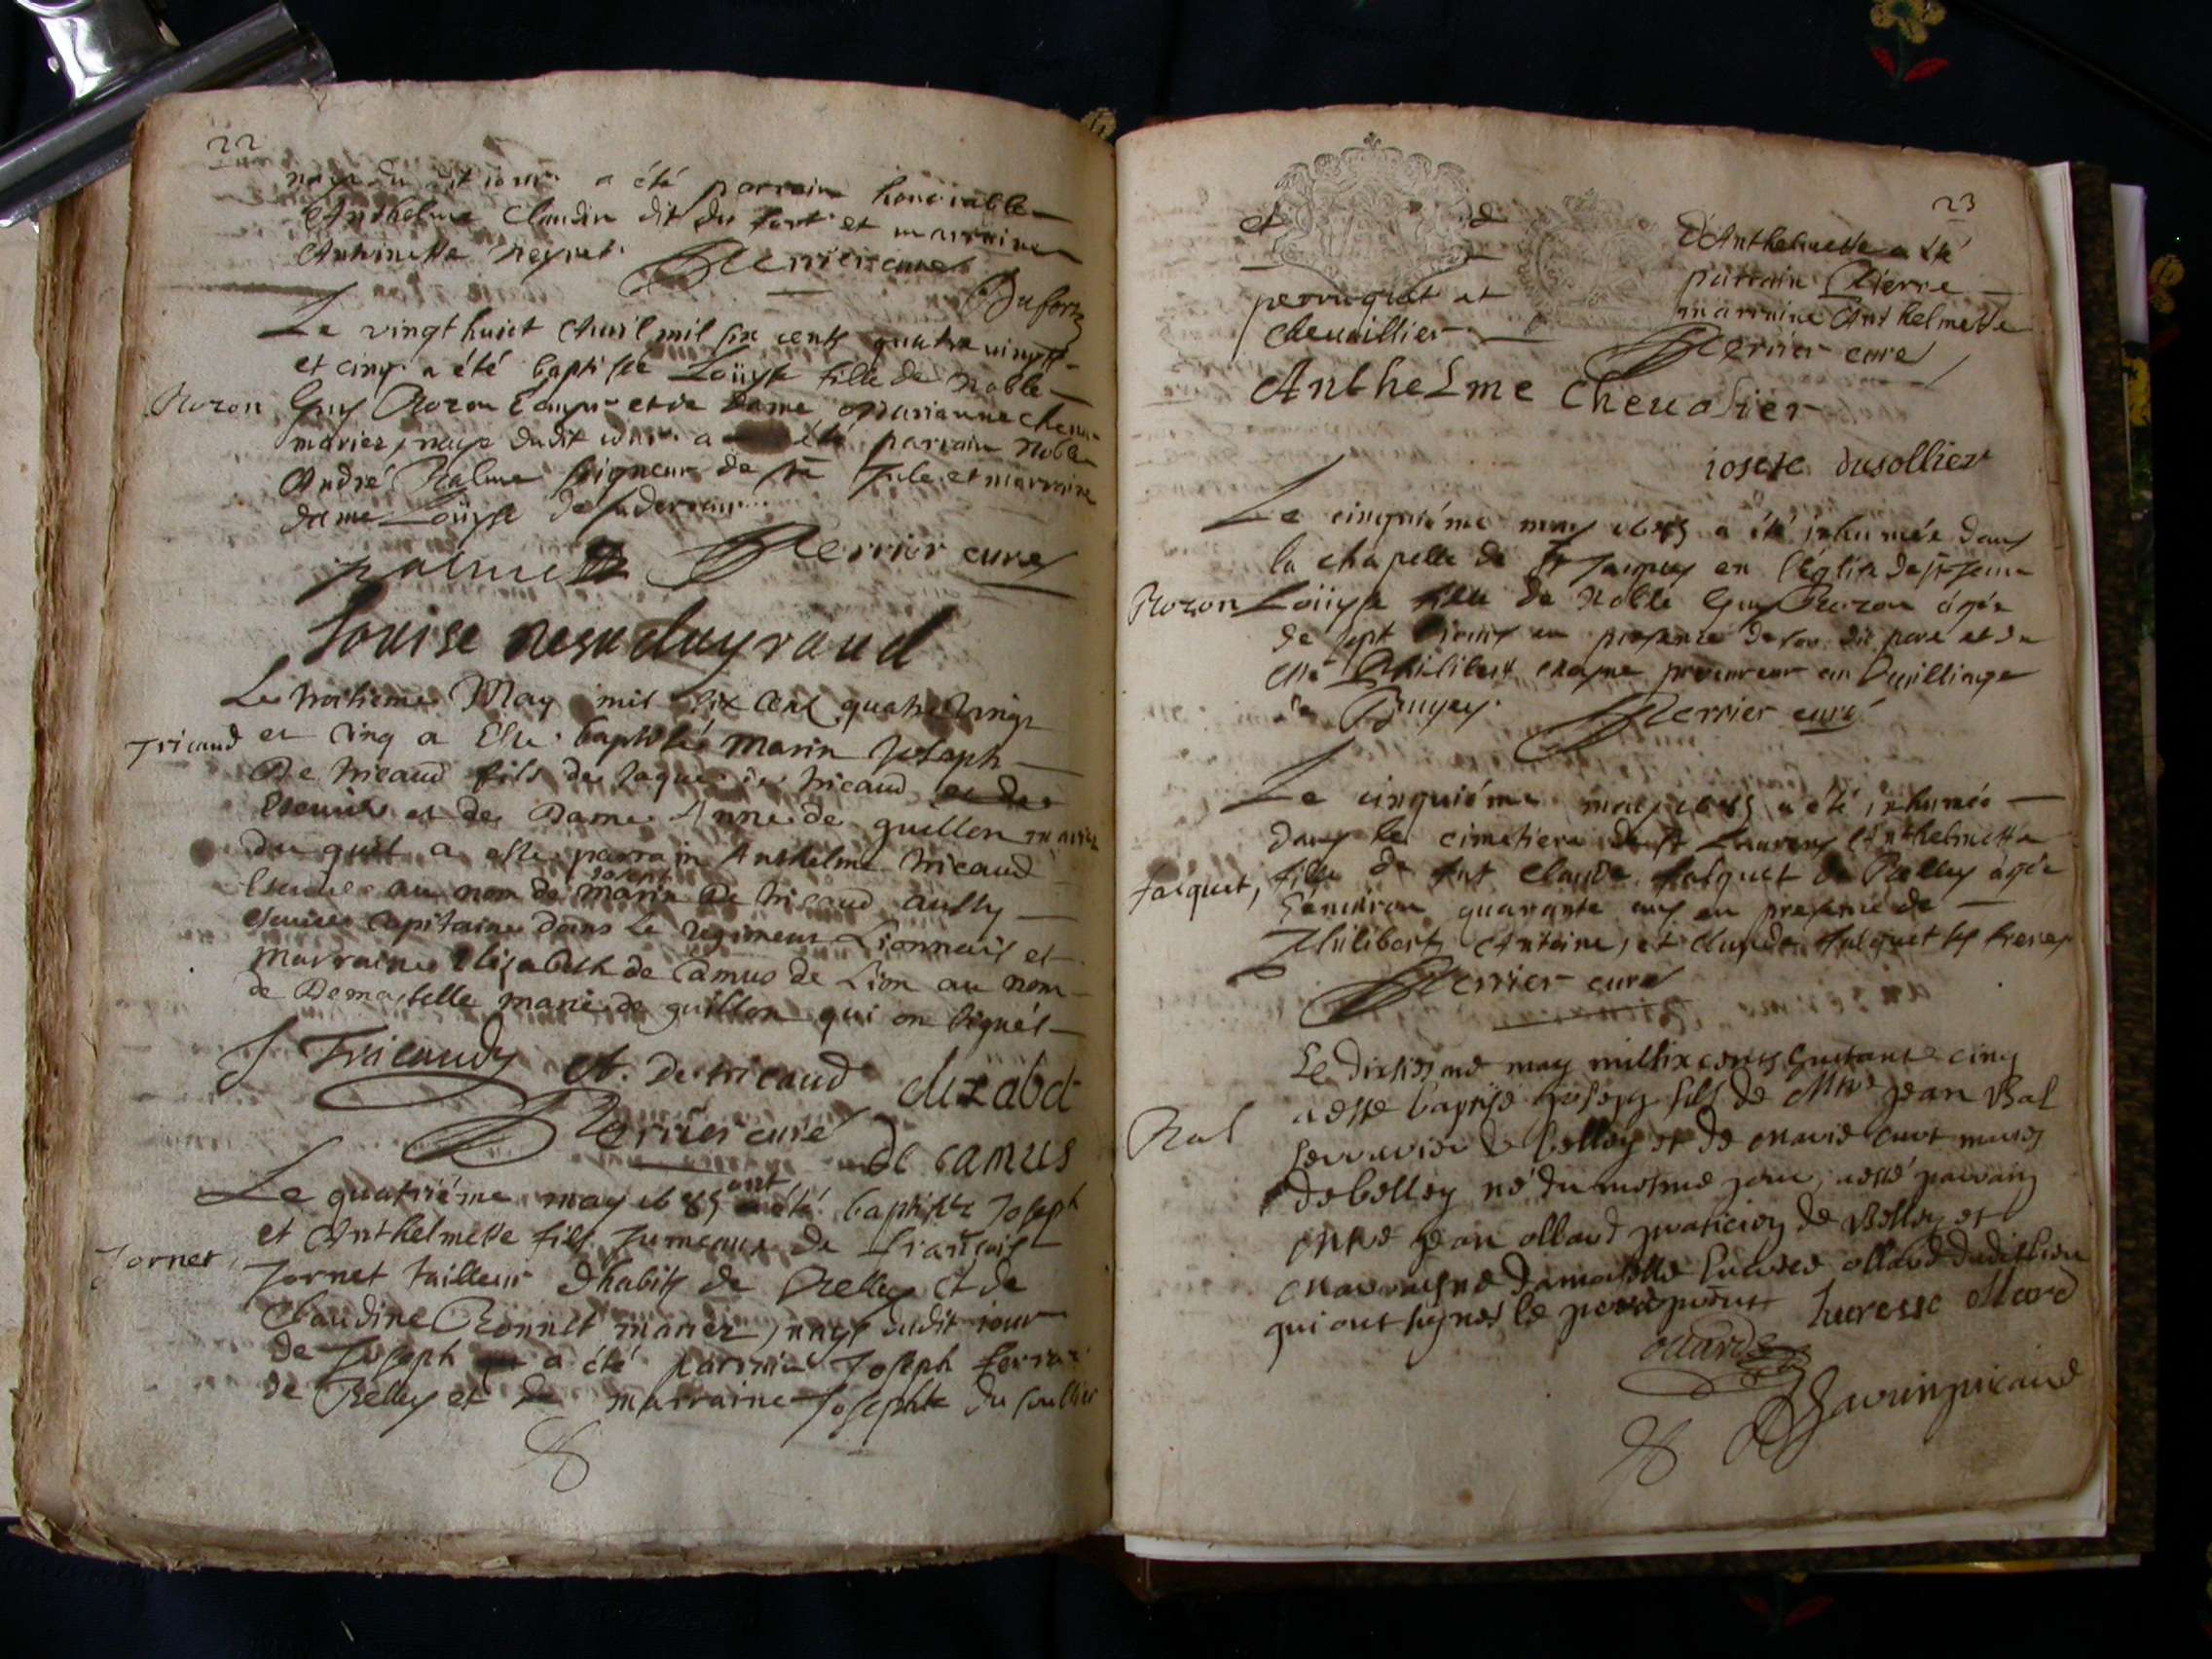 22
naye dudit jour a été parrain honorable
Anthelme Claudin dit du fort et marraine
Antoinette
Perrier curé
Dufort
Le vingt huict Avril mil six cents quatre vingts
et cinq a été baptisée Loüyse fille de Noble
Rozon
Guy Rozon et de Dame Marianne
mariez, naye dudit jour a été parrain Noble
André Palme seigneur de et marraine
dame Loüyse de
palme Perrier curé
Louise
Le troisieme May mil six cent quatre vingt
Tricaud
et cinq a esté baptisé Marin Joseph
De tricaud fils de Jaque de tricaud et de
Escuier et de Dame Anne de guillon mariés
du quel a esté parrain Anthelme tricaud
Joseph
Escuier au nom de Marin De tricaud aussy
escuier Capitaine dans Le regiment Lionnois et
Marraine Elizabeth de Camus de Lion au nom
de Demoiselle marie de guillon qui on signés
J Tricaud A. De tricaud elizabet
Perrier curé de camus
ont
Le quatriéme may 1685 été baptisez Joseph
et Anthelmette fils Jumeaux de François
Jornet
Jornet tailleur d'habits de Belley et de
Claudine Bonnet mariez, nays dudit jour
de Joseph a été parrain Joseph
de Belley et de marraine Josephte du soullier
23
et d d'Anthelmette a été
parrain Pierre
perruquet et marraine Anthelmette
chevaillier Perrier curé
Anthelme Chevalier
iosete dusollier
Le cinquiéme may 1685 a été inhumée dans
la chapelle de St Jacques en l'église de St Jean
Rozon
Loüyse fille de Noble Guy Rozon âgée
de sept jours en presence de son dit pere et de
Me Philibert procureur au Bailliage
de Bugey. Perrier curé
Le cinquiéme may 1685 a été inhumée
dans le cimetiere de St Laurens Anthelmette
falquet,
fille de fut Claude falquet de Belley âgée
d'environ quarante ans en presence de
Philibert, Antoine, et Claude falquet ses freres
Perrier curé
Le dixiesme may mil six cents huitante cinq
a esté baptisé Joseph fils de Mre Jean Bal
Bal
serrurier de belley et de marie mariés
de belley né du mesme jour, a esté parrain
Mre Jean ollard praticien de Belley et
marraisne damoiselle Lucrece ollard dudit lieu
qui ont signés le Lucresse ollard
ollard